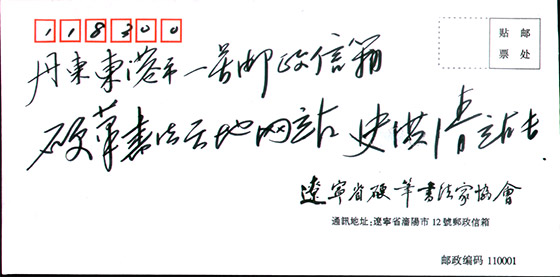 118300
贴 邮
票 处
丹東東港市一号邮政信箱
硬筆書法天地网站 史洪清站长
遼寧省硬筆書法家協會
通訊地址:遼寧省瀋陽市12號郵政信箱
邮政编码 110001